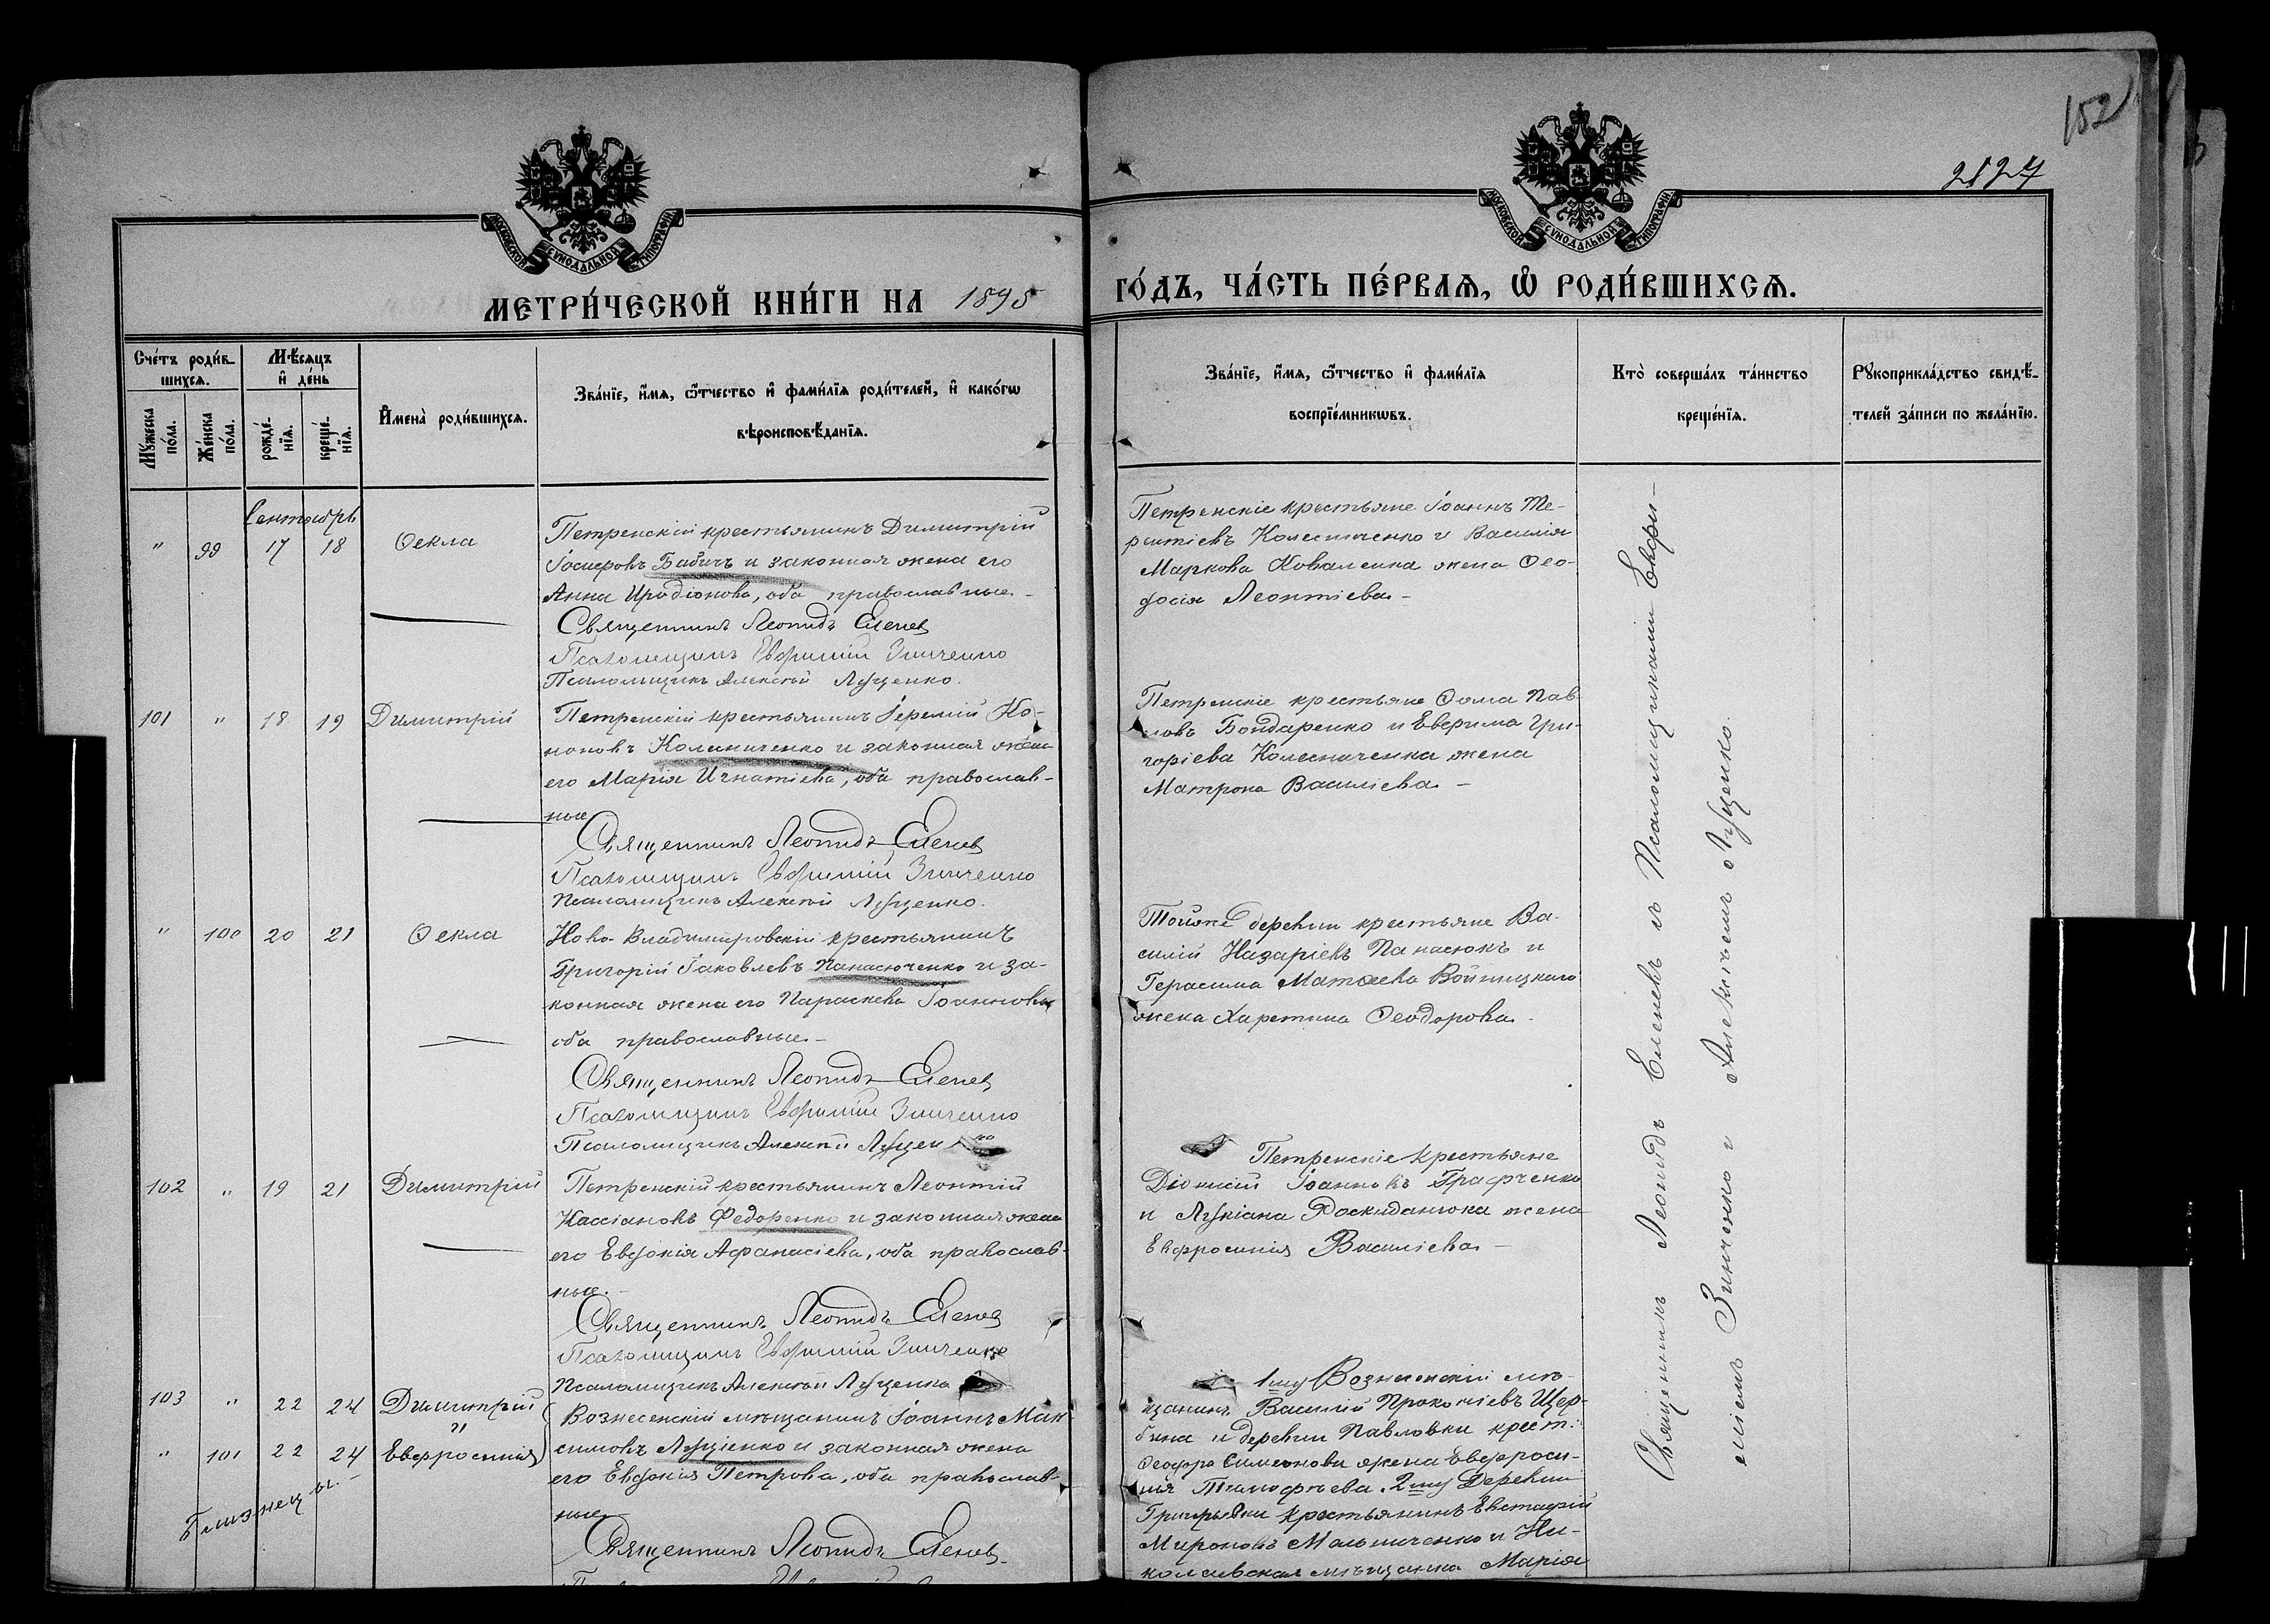 152
2827
МОСКОВСКОЙ СУНОДАЛЬНОЙ ТИПОГРАФІИ
МОСКОВСКОЙ СУНОДАЛЬНОЙ ТИПОГРАФІИ
МЕТРИ́ЧЕСКОЙ КНИ́ГИ НА 1895
ГО́ДЪ, ЧА́СТЬ ПЕ́РВАѦ, Ѡ РОДИ́ВШИХСѦ.
Сче́тъ роди́в-
шихсѧ.
Мѣ́сѧцъ
и҆ де́нь
Мꙋ́жеска
по́ла.
Же́нска
по́ла.
рожде́-
нїѧ.
креще́-
нїѧ.
И҆мена̀ роди́вшихсѧ.
Зва́нїе, и҆́мѧ, ѻ҆́тчество и҆ фами́лїѧ роди́телей, и҆ како́гѡ
вѣроисповѣ́данїѧ.
Зва́нїе, и҆́мѧ, ѻ҆́тчество и҆ фами́лїѧ
воспрїе́мникѡвъ.
Кто̀ соверша́лъ та́инство
креще́нїѧ.
Рꙋкоприкла́дство свидѣ́-
телей за́писи по жела́нїю.
Сентябрь
" 99 17 18 Ѳекла
Петренскій крестьянинъ Димитрій
Іосифовъ Бабичъ и законная жена его
Анна Иродіонова, оба православные.-
Священникъ Леонидъ Еленев
Псаломщикъ Евфимій Зинченко
Псаломщикъ Алексѣй Луценко.
Петренскіе крестьяне Іоаннъ Те-
рентіевъ Колесниченко и Василія
Маркова Коваленка жена Ѳео-
досія Леонтіева-
101 " 18 19 Димитрій
Петренскій крестьянинъ Іеремій Ко-
ноновъ Колесниченко и законная жена
его Марія Игнатіева, оба православ-
ные
Священникъ Леонидъ Еленев
Псаломщикъ Евфимій Зинченко
Псаломщикъ Алексѣй Луценко.
Петренскіе крестьяне Ѳома Пав-
ловъ Бондаренко и Ефрима Гри-
горіева Колесниченка жена
Матрона Василіева -
" 100 20 21 Ѳекла
Ново-Владимировскій крестьянинъ
Григорій Іаковлевъ Панасюченко и за-
конная жена его Параскева Іоаннова
оба православные.-
Священникъ Леонидъ Еленев
Псаломщикъ Евфимій Зинченко
Псаломщикъ Алексѣй Луценко
Тойже деревни крестьяне Ва-
силій Назаріевъ Панасюкъ и
Герасима Матѳеева Войницкаго
жена Харитина Ѳеодорова.
102 " 19 21 Димитрій
Петренскій крестьянинъ Леонтій
Кассіановъ Федоренко и законная жена
его Евдокія Аѳанасіева, оба православ-
ные.-
Священникъ Леонидъ Еленев
Псаломщикъ Евфимій Зинченко
Псаломщикъ Алексѣй Луценко
Петренскіе крестьяне
Діонисій Іоанновъ Графченко
и Лукіана Роскиданюка жена
Евфросинія Василіева -
103 " 22 24 Димитрій
и
" 101 22 24 Евфросинія
Близнецы.
Вознесенскій мѣщанинъ Іоаннъ Мак-
симовъ Луценко и законная жена
его Евдокія Петрова, оба православ-
ные
Священникъ Леонидъ Еленев.
1му Вознесенскій мѣ-
щанинъ Василій Прокопіевъ Щер-
бина и деревни Павловки крест:
Ѳеодора Симеонова жена Евфроси-
нія Тимофѣева. 2му Деревни
Григорьевки крестьянинъ Евстафій
Мироновъ Мальниченко и Ни-
колаевская мѣщанка Марія
Священникъ Леонидъ Еленевъ съ Псаломщиками Евфи-
міемъ Зинченко и Алексѣемъ Луценко.